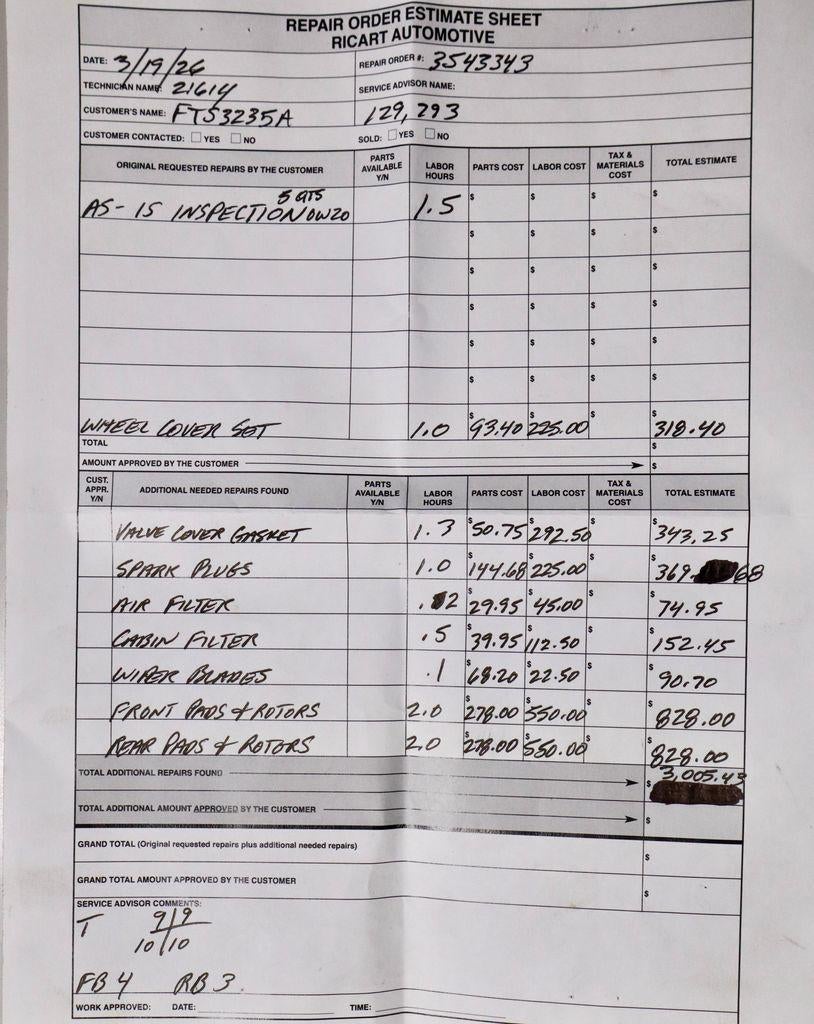 REPAIR ORDER ESTIMATE SHEET
RICART AUTOMOTIVE
DATE: 3/19/26 REPAIR ORDER #: 3543343
TECHNICIAN NAME: 21614 SERVICE ADVISOR NAME:
CUSTOMER'S NAME: FTS3235A 129,793
CUSTOMER CONTACTED: YES NO SOLD: YES NO
ORIGINAL REQUESTED REPAIRS BY THE CUSTOMER PARTS AVAILABLE Y/N LABOR HOURS PARTS COST LABOR COST TAX & MATERIALS COST TOTAL ESTIMATE
5 QTS
AS-IS INSPECTION 0W20 1.5 $ $ $ $
$ $ $ $
$ $ $ $
$ $ $ $
$ $ $ $
$ $ $ $
WHEEL COVER SET 1.0 $93.40 $225.00 $ $318.40
TOTAL $
AMOUNT APPROVED BY THE CUSTOMER $
CUST. APPR. Y/N ADDITIONAL NEEDED REPAIRS FOUND PARTS AVAILABLE Y/N LABOR HOURS PARTS COST LABOR COST TAX & MATERIALS COST TOTAL ESTIMATE
VALVE COVER GASKET 1.3 $50.75 $292.50 $ $343.25
SPARK PLUGS 1.0 $144.68 $225.00 $ $369.68
AIR FILTER .2 $29.95 $45.00 $ $74.95
CABIN FILTER .5 $39.95 $112.50 $ $152.45
WIPER BLADES .1 $68.20 $22.50 $ $90.70
FRONT PADS & ROTORS 2.0 $278.00 $550.00 $ $828.00
REAR PADS & ROTORS 2.0 $278.00 $550.00 $ $828.00
TOTAL ADDITIONAL REPAIRS FOUND $ 3,005.43
TOTAL ADDITIONAL AMOUNT APPROVED BY THE CUSTOMER $
GRAND TOTAL (Original requested repairs plus additional needed repairs) $
GRAND TOTAL AMOUNT APPROVED BY THE CUSTOMER $
SERVICE ADVISOR COMMENTS:
T 9/9
10/10
FB 4 RB 3
WORK APPROVED: DATE: TIME: